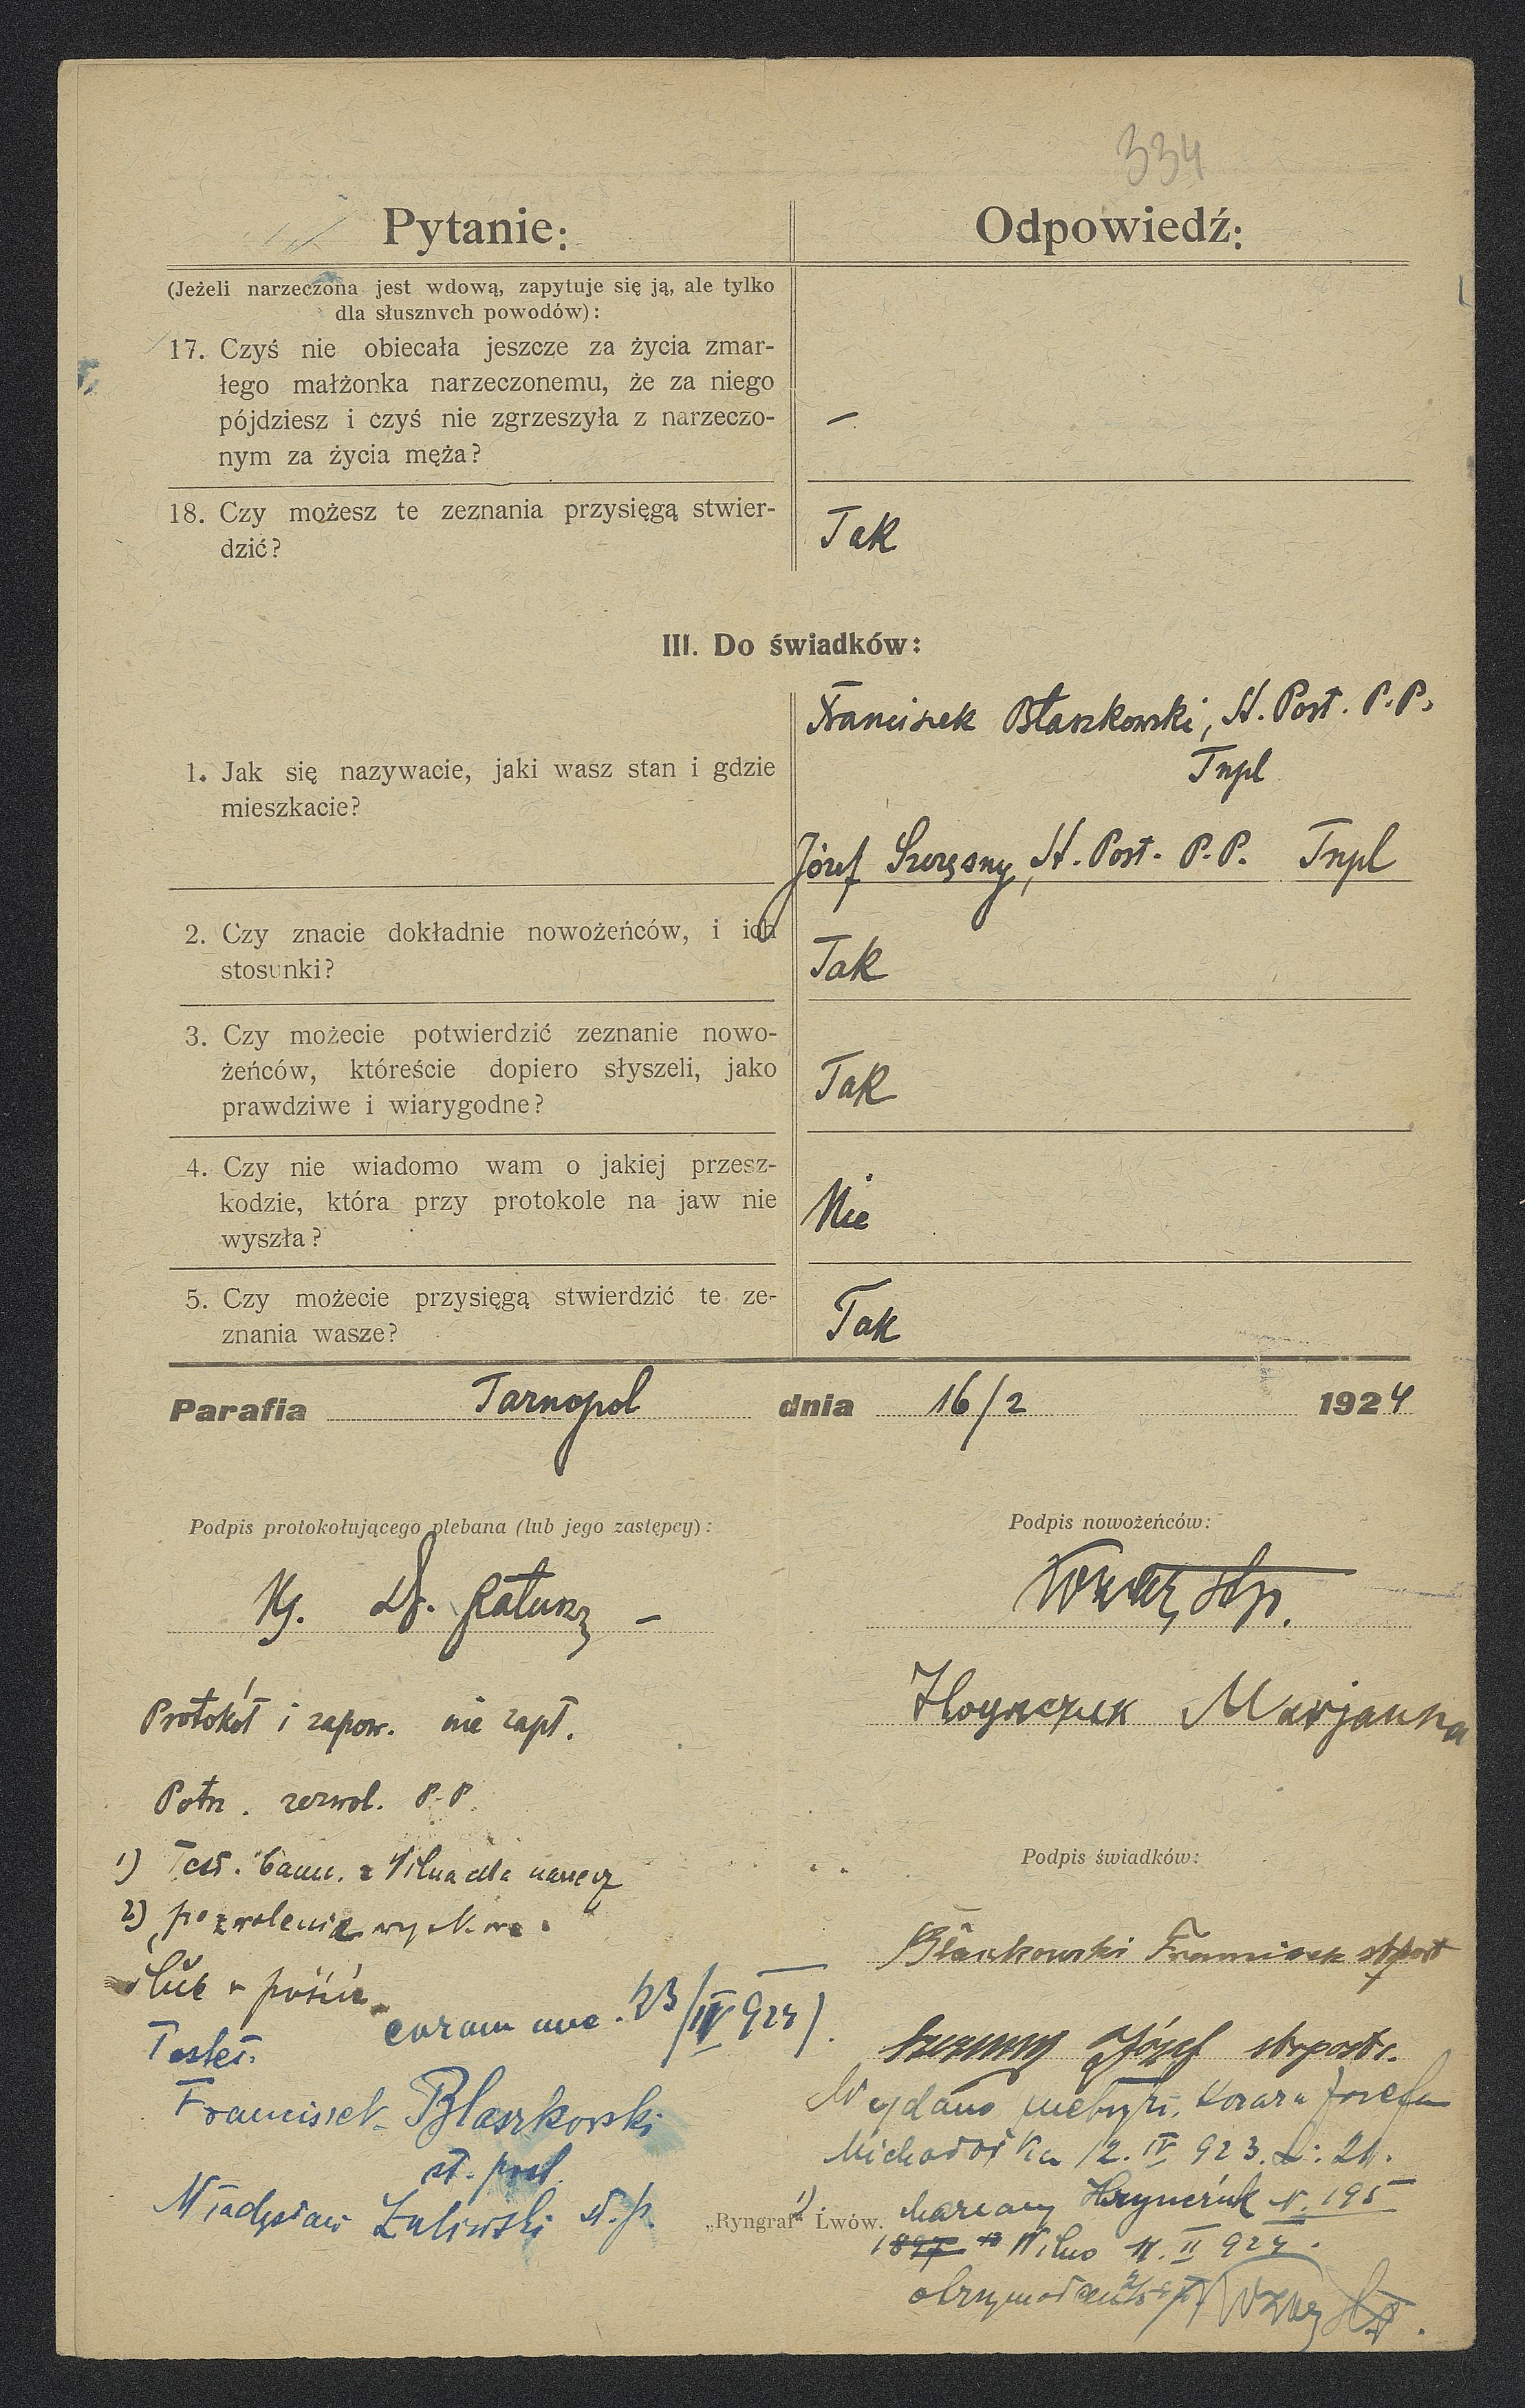 334
Pytanie:
Odpowiedź:
(Jeżeli narzeczona jest wdową, zapytuje się ją, ale tylko
dla słusznych powodów):
17. Czyś nie obiecała jeszcze za życia zmar-
łego małżonka narzeczonemu, że za niego
pójdziesz i czyś nie zgrzeszyła z narzeczo-
nym za życia męża?
–
18. Czy możesz te zeznania przysięgą stwier-
dzić?
Tak
III. Do świadków:
1. Jak się nazywacie, jaki wasz stan i gdzie
mieszkacie?
Franciszek Błaszkowski, St. Post. P.P.
Tnpl
Józef Szczęsny, St. Post. P.P. Tnpl
2. Czy znacie dokładnie nowożeńców, i ich
stosunki?
Tak
3. Czy możecie potwierdzić zeznanie nowo-
żeńców, któreście dopiero słyszeli, jako
prawdziwe i wiarygodne?
Tak
4. Czy nie wiadomo wam o jakiej przesz-
kodzie, która przy protokole na jaw nie
wyszła?
Nie
5. Czy możecie przysięgą stwierdzić te ze-
znania wasze?
Tak
Parafia Tarnopol dnia 16/2 1924
Podpis protokołującego plebana (lub jego zastępcy):
Podpis nowożeńców:
Dr. Ratusz –
Marjanna
Protokół i zapow. nie zapł.
Potrz. zezwol. P.P.
1) Test. bann. z Wilna dla narzecz
2) pozwolenie
Podpis świadków:
Błaszkowski Franciszek st post
Ślub w poście
coram me. 23/IV 924).
Testes
Szczęsny Józef st. post.
Franciszek Błaszkowski
st. post.
Wydano metryki Józefa
12. IV 923. L: 21.
Władysław Zaliwski st. p.
„Ryngraf" Lwów.
1) Marianny Hryńczuk N. 195
1897 Wilno 11. II 924.